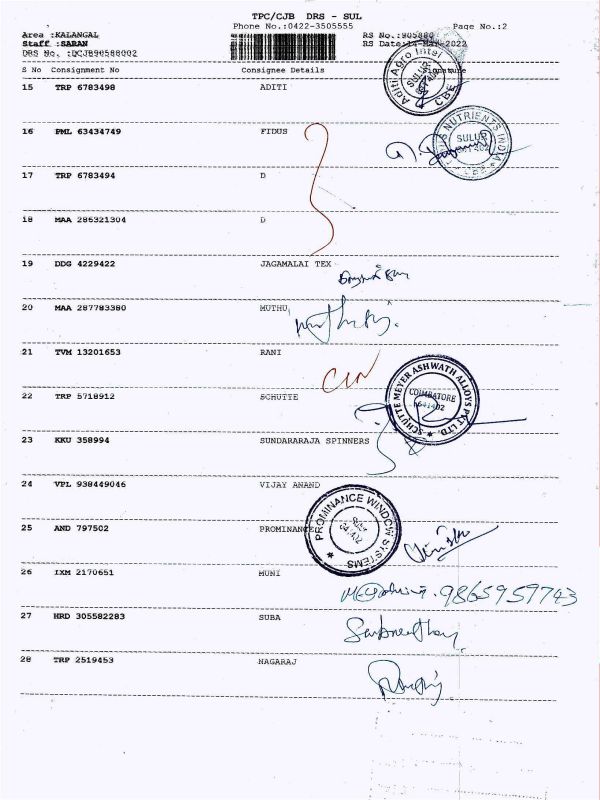 TPC/CJB DRS - SUL
Phone No.:0422-3505555 Page No.:2
Area :KALANGAL RS No.:905880
Staff :SARAN RS Date:14-Mar-2022
DRS No. :DCJB90588002
S No Consignment No Consignee Details Signature
15 TRP 6783498 ADITI
Aditi Agro Intel
SULUR
CBE
16 PML 63434749 FIDUS
NUTRIENTS INDIA
SULUR
17 TRP 6783494 D
18 MAA 286321304 D
19 DDG 4229422 JAGAMALAI TEX
20 MAA 287783380 MUTHU
21 TVM 13201653 RANI
22 TRP 5718912 SCHUTTE
SCHUTTE MEYER ASHWATH ALLOYS PVT LTD.
COIMBATORE
641402
23 KKU 358994 SUNDARARAJA SPINNERS
24 VPL 938449046 VIJAY ANAND
25 AND 797502 PROMINANCE
PROMINANCE WINDOW SYSTEMS
26 IXM 2170651 MUNI
9865959743
27 HRD 305582283 SUBA
28 TRP 2519453 NAGARAJ